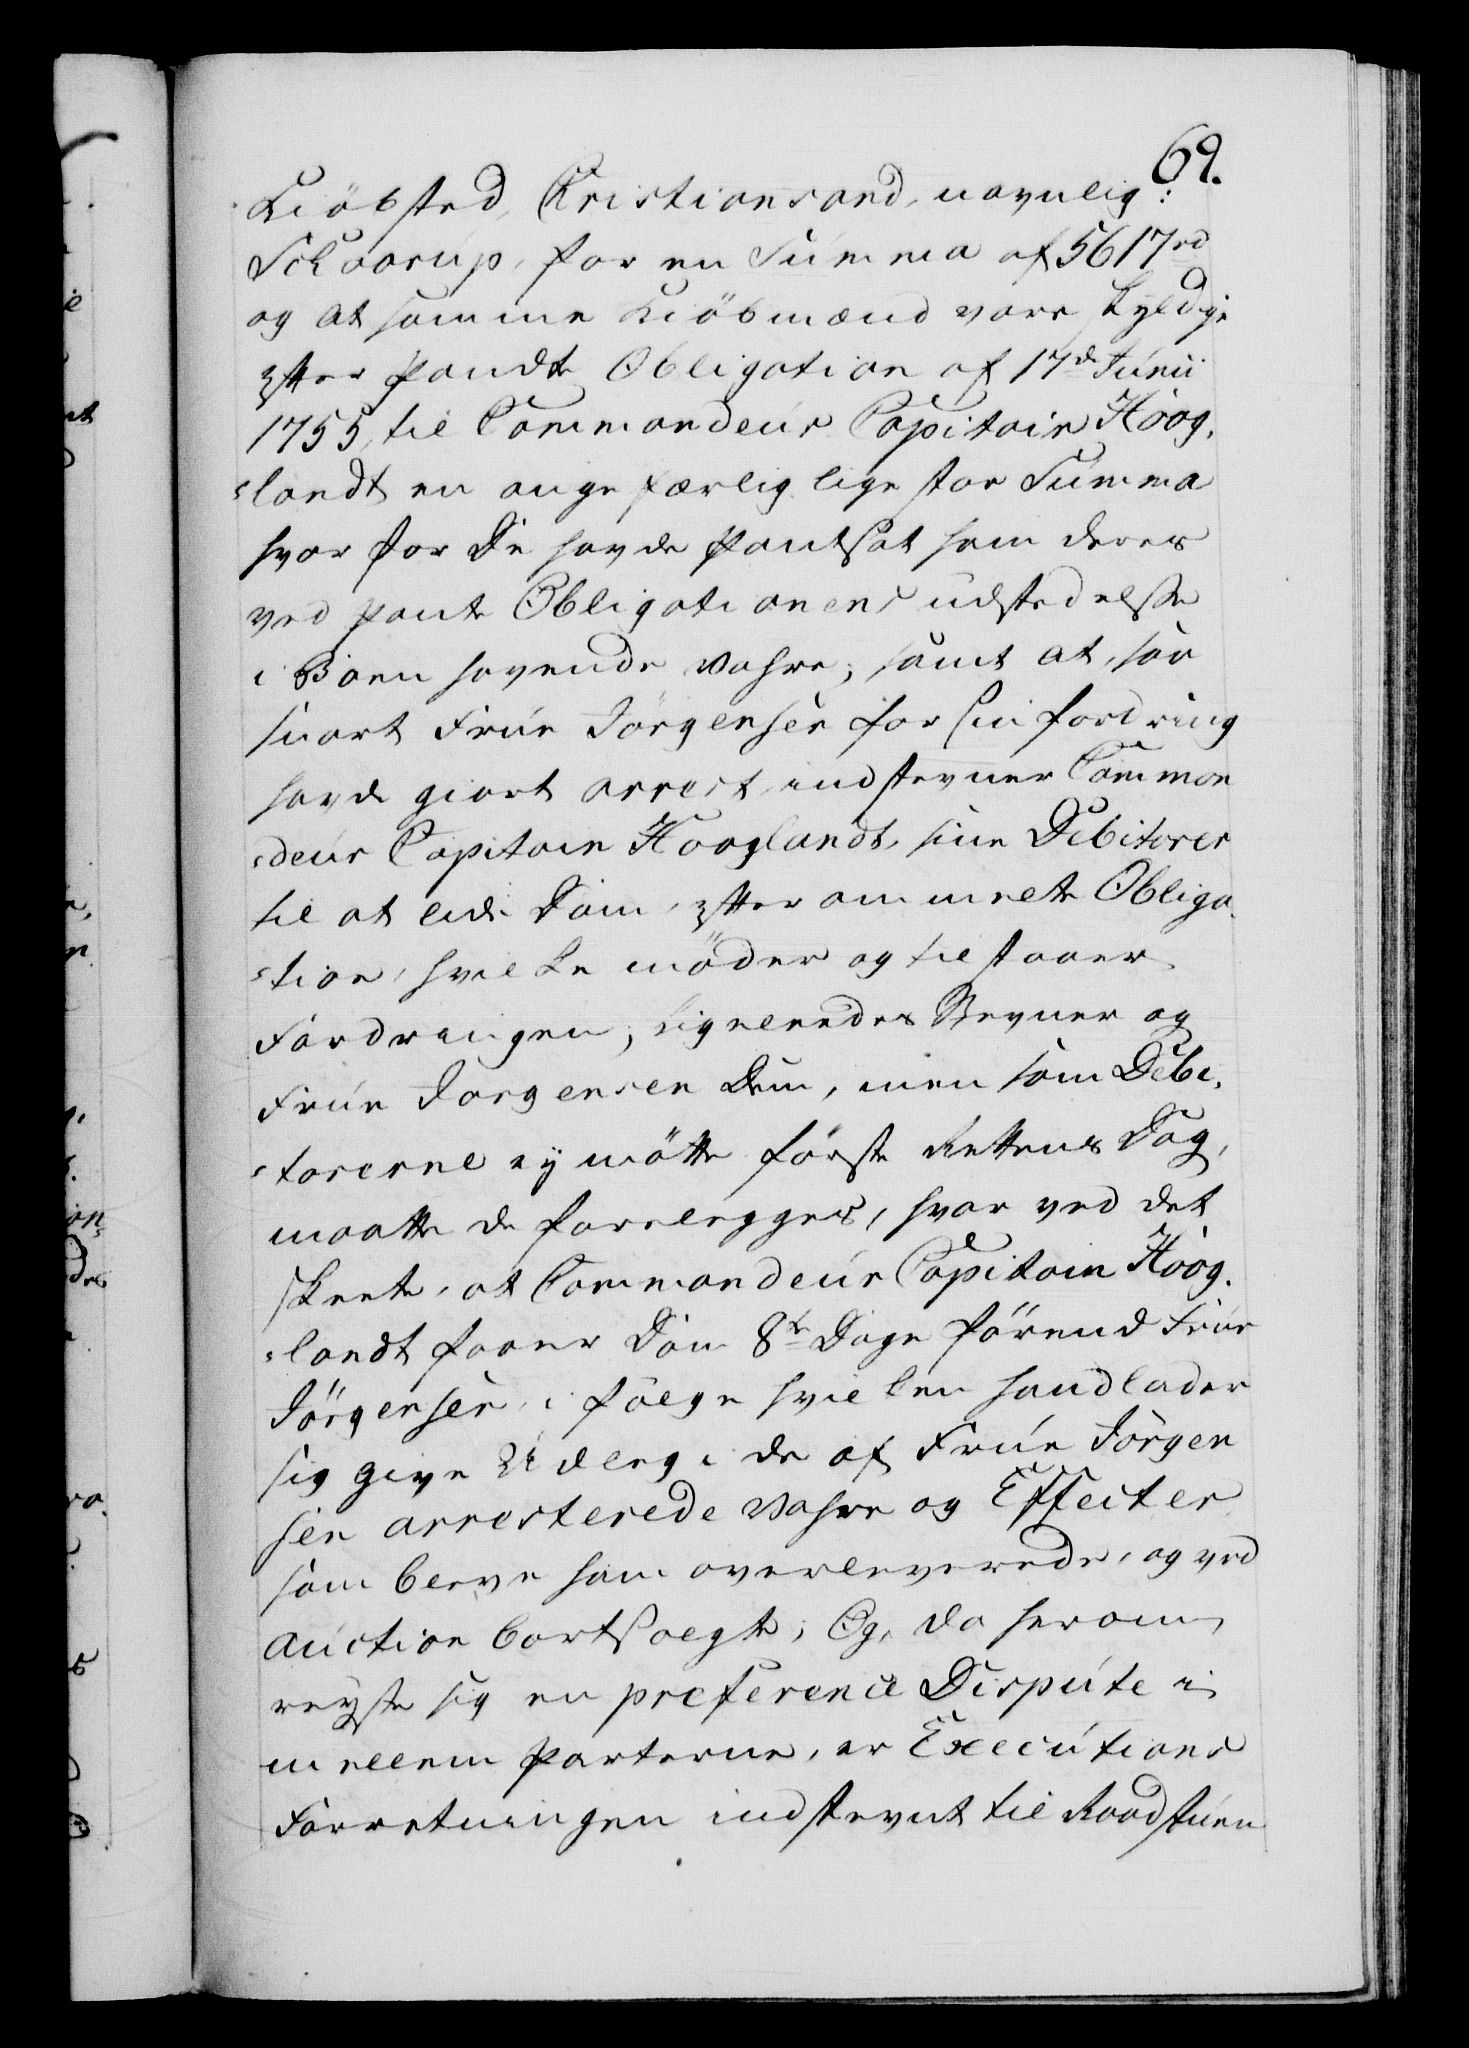 69.
Kiöbsted, Christiansand, navnlig:
Schaarup, for en Summa af 5617rd
og at samme Kiöbmænd vare skyldige
efter Pandte Obligation af 17de Junii
1755, til Commandeur Capitain Hoog-
landt en ongefærlig lige stor Summa
hvorfor De havde Pantsat ham deres
ved Pante Obligationens udstedelse
i Boen havende Vahre; samt at, saa
snart Frue Jörgensen for sin fordring
havde giort arrest, indstevner Comman
deur Capitain Hooglandt, sine Debitorer
til at lide Dom, efter ommelte Obliga-
tion, hvilke möder og tilstaaer
Fordringen, ligeleedes Stevner og
Frue Jörgensen Dem, men som Debi-
torerne ey mötte förste Rettens Dag,
maatte de forelegges, hvorved det
skeete, at Commandeur Capitain Hoog-
landt faaer Dom 8te Dage förend Frue
Jörgensen, i fölge hvilken hand lader
sig give Udleg i de af Frue Jörgen
sen arresterede Vahre og Effecter
som bleve ham overleverede, og ved
Auction bortsolgte; Og, da herom
reyste sig en præference Dispute i
mellem Parterne, er Executions
Forretningen indstevnt til Raadstuen